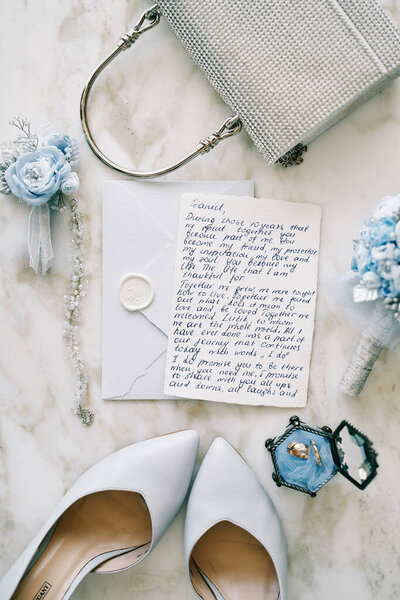 During those 10 years that
we spent together you
became part of me. You
become my friend, my protector
my inspiration, my love and
my soul. You became my
life. The life that I am
thankful for.
Together we grew, we were taught
how to live. Together we found
out what does it mean to
love and be loved Together we
welcomed to whom
we are the whole world. All I
have ever done was a part of
our journey that continues
today with words „ I do"
I do promise you to be there
when you need me. I promise
to share with you all ups
and downs, all laughs and